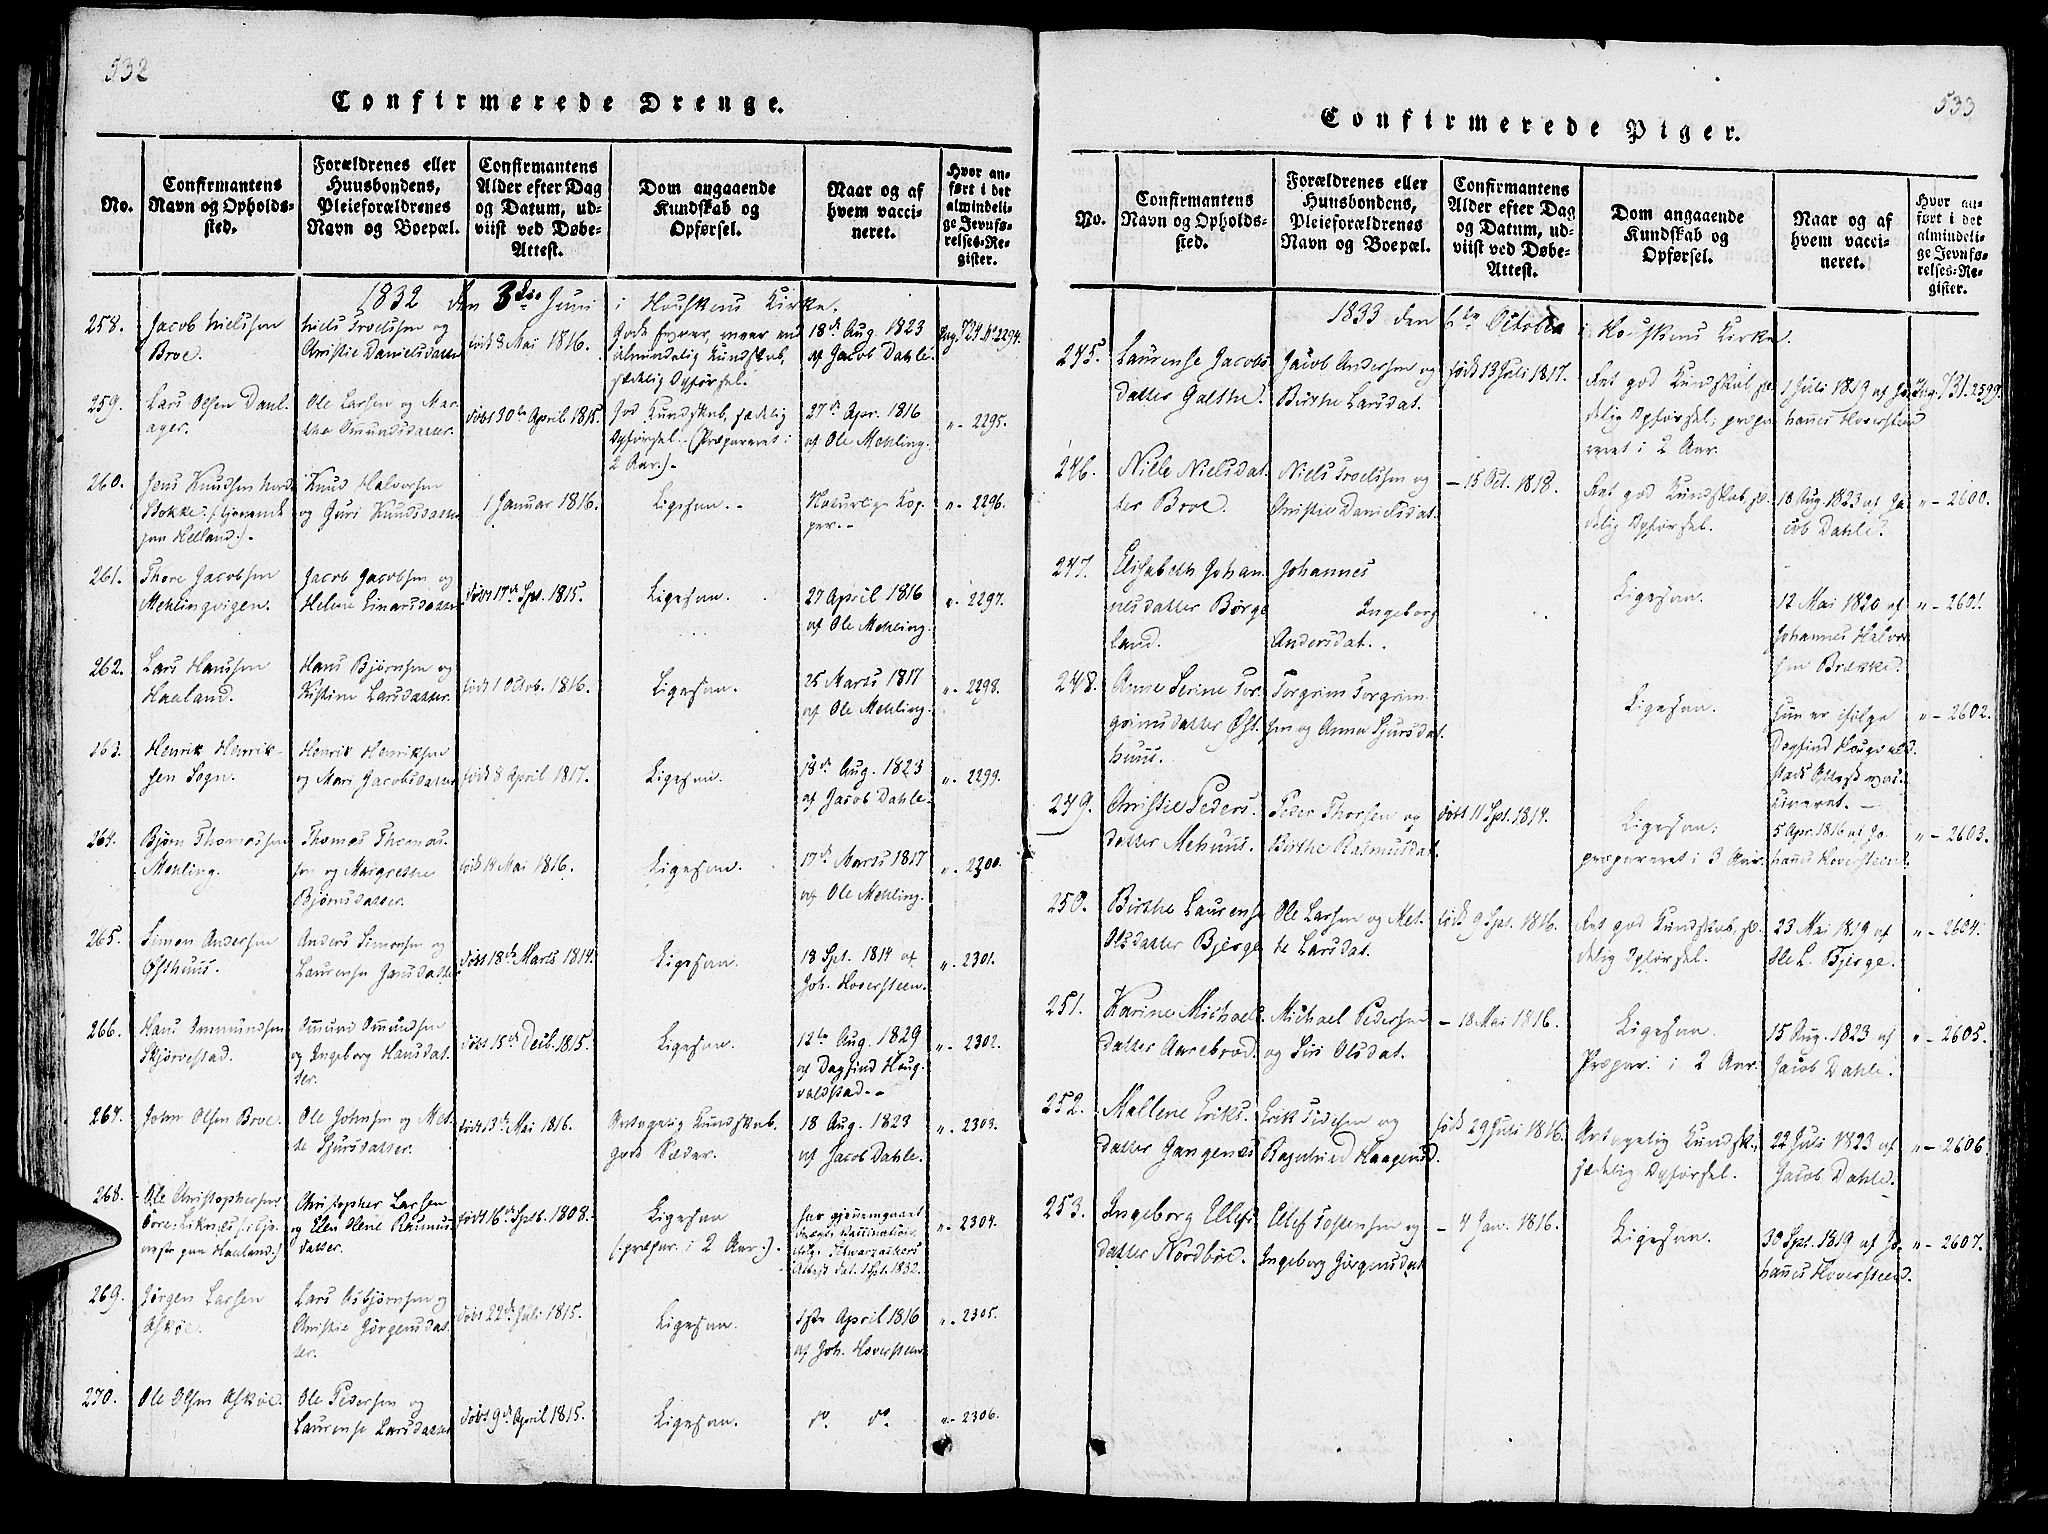 532
Confirmerede Drenge.
No.
Confirmantens
Navn og Opholds-
sted.
Forældrenes eller
Huusbondens,
Pleieforældrenes
Navn og Boepæl.
Confirmantens
Alder efter Dag
og Datum, ud-
viist ved Døbe-
Attest.
Dom angaaende
Kundskab og
Opførsel.
Naar og af
hvem vacci-
neret.
Hvor an-
ført i det
almindeli-
ge Jevnfø-
relses-Re-
gister.
1832 den 3die Juni i Houskens Kirke.
258.
Jacob Nielssen
Broe.
Niels Troelssen og
Christie Danielsdatter
født 8 Mai 1816.
almindelig Kundskab,
sædelig Opførsel.
18de Aug. 1823
af Jacob Dahle.
Pag. 724 No 2294.
259.
Lars Olsen Dahl-
ager.
Ole Larsen og Mar-
the Omundsdatter
døbt 30te April 1815.
God Kundskab, sædelig
Opførsel. (Præpareret i
2 Aar.)
27de Apr. 1816
af Ole Mehling.
" - 2295.
260.
Jens Knudsen Nord-
Stokke. (tjenende
paa Helland.)
Knud Halvorsen
og Guri Knudsdatter
1 Januar 1816.
Ligesaa.
Naturlige Kop-
per.
" - 2296.
261.
Thore Jacobsen
Mehlingvigen.
Jacob Jacobsen og
Helene Einarsdatter
døbt 17de Spt. 1815.
Ligesaa.
27 April 1816
af Ole Mehling.
" - 2297.
262.
Lars Hanssen
Haaland.
Hans Bjørnsen og
Kistine Larsdatter.
født 1 Octob. 1816.
Ligesaa.
25 Marts 1817
af Ole Mehling.
" - 2298.
263.
Henrik Henrik-
sen Sogn.
Henrik Henriksen
og Mari Jacobsdatter
født 8 April 1817.
Ligesaa.
18de Aug. 1823
af Jacob Dahle.
" - 2299.
264.
Bjørn Thomassen
Mehling.
Thomas Thomas-
sen og Margrethe
Bjørnsdatter.
født 14 Mai 1816.
Ligesaa.
17de Marts 1817
af Ole Mehling.
" - 2300.
265.
Simon Andersen
Østhuus.
Anders Simonsen og
Laurense Jansdatter
døbt 18de Marts 1814.
Ligesaa.
18 Spt. 1814 af
Joh. Hoversteen.
" - 2301.
266.
Hans Ommundsen
Skjørvestad.
Omund Omundsen
og Ingeborg Hansdat-
ter.
døbt 15de Decb. 1815.
Ligesaa.
12te Aug. 1829
af Dagfind Houg-
valdstad.
" - 2302.
267.
John Olsen Broe.
Ole Johnsen og Met-
te Sjursdatter.
født 13de Mai 1816.
Antagelig Kundskab.
gode Sæder.
18 Aug. 1823
af Jacob Dahle.
" - 2303.
268.
Ole Christophersen
Christopher Larsen
og Elen Helene Rasmus-
datter.
født 16de Septb. 1808.
Ligesaa
(præpar. i 2 Aar.)
har gjennemgaaet
Attest dat. 1 Spt. 1832.
" - 2304.
269.
Jørgen Larsen
Askøe.
Lars Asbjørnsen og
Christie Jørgensdat-
ter.
døbt 22de Juli 1815.
Ligesaa.
1ste April 1816
af Joh. Hoversteen
" - 2305.
270.
Ole Olsen Askøe.
Ole Pedersen og
Laurense Larsdatter
døbt 9de April 1815.
Ligesaa.
do do.
" - 2306.
533
Confirmerede Piger.
No.
Confirmantens
Navn og Opholds-
sted.
Forældrenes eller
Huusbondens,
Pleieforældrenes
Navn og Boepæl.
Confirmantens
Alder efter Dag
og Datum, ud-
viist ved Døbe-
Attest.
Dom angaaende
Kundskab og
Opførsel.
Naar og af
hvem vacci-
neret.
Hvor an-
ført i det
almindeli-
ge Jevnfø-
relses-Re-
gister.
1833 den 6te October i Houskens Kirke.
245.
Laurense Jacobs
datter Galthe.
Jacob Andersen og
Birthe Larsdat.
født 13 Juli 1817.
Ret god Kundskab, sæ-
delig Opførsel, præpa-
reret i 2 Aar.
1 Juli 1819 af Jo-
hannes Hoversteen
Pag. 731. 2599.
246.
Nille Nielsdat-
ter Broe.
Niels Troelssen og
Christie Danielsdat.
- 15 Oct. 1818.
Ret god Kundskab, sæ-
delig Opførsel.
18 Aug. 1823 af Ja-
cob Dahle.
" - 2600.
247.
Elisabeth Johan-
nesdatter Børge
land.
Johannes
Ingeborg
Andersdat.
Ligesaa.
12 Mai 1820 af
Johannes Halvor-
sen Brekke.
" - 2601.
248.
Anne Serine Tor-
grimsdatter Øst-
huus.
Torgrim Torgrim-
sen og Anna Sjursdat.
Ligesaa.
hun er ifølge
Dagfind Hougvald-
stads Attest vac-
cineret.
" - 2602.
249.
Christie Peders-
datter Mehuus.
Peder Thorsen og
Birthe Rasmusdat.
døbt 11 Spt. 1814.
Ligesaa;
præpareret i 3 Aar.
5 Apr. 1816 af Jo-
hannes Hoversteen.
" - 2603.
250.
Birthe Laurense
Olsdatter Bjerge
Ole Larsen og Met-
te Larsdat.
født 9 Spt. 1816.
Ret god Kundskab, sæ-
delig Opførsel.
23 Mai 1819 af
Ole L. Bjerge.
" - 2604.
251.
Karine Michaels
datter Aarebrod.
Michael Pedersen
og Siri Olsdat.
- 18 Mai 1816.
Ligesaa.
Præpar. i 2 Aar.
15 Aug. 1823 af
Jacob Dahle.
" - 2605.
252.
Mallene Eriks-
datter Gangenæs
Erik Tidesen og
Ragnhild Haagensd.
født 29 Juli 1816.
Antagelig Kundsk.,
sædelig Opførsel.
22 Juli 1823 af
Jacob Dahle.
" - 2606.
253.
Ingeborg Ellefs
datter Nordbøe.
Ellef Tostensen og
Ingeborg Jørgensdat.
- 4 Jan. 1816.
Ligesaa.
30 Spt. 1819 af Jo-
hannes Hoversteen.
" - 2607.